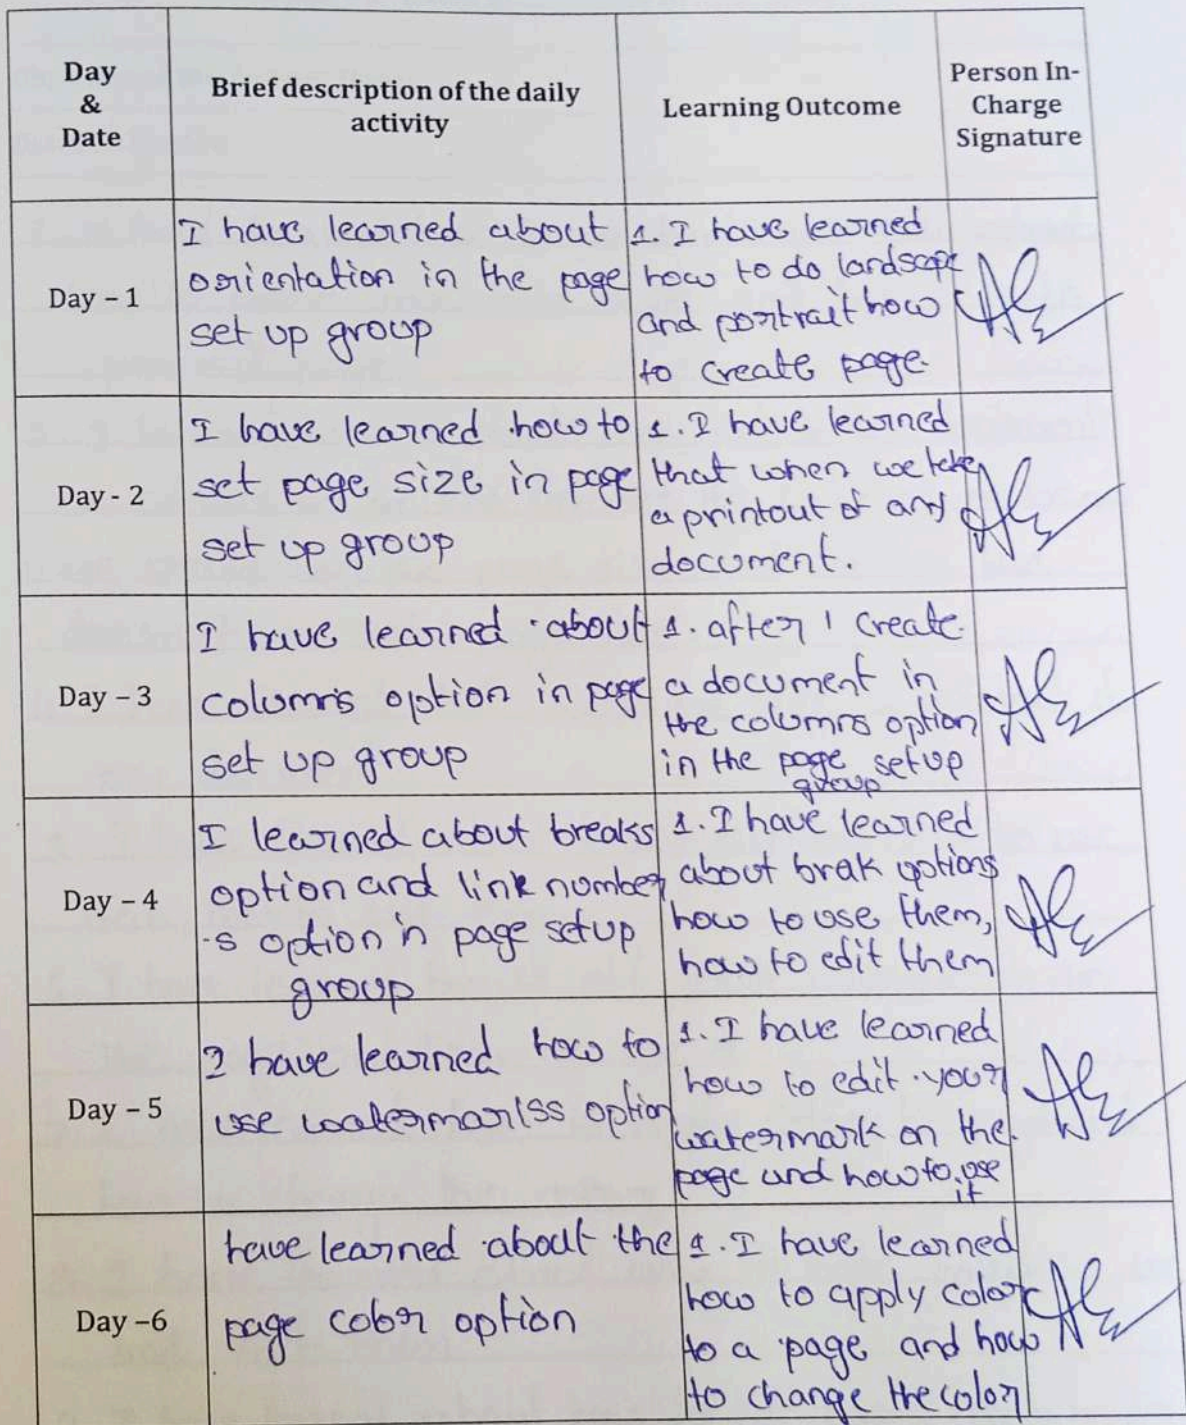 Day
&
Date
Brief description of the daily
activity
Learning Outcome
Person In-
Charge
Signature
Day – 1
I have learned about
orientation in the page
set up group
1. I have learned
how to do landscape
and portrait how
to create page.
Day - 2
I have learned how to
set page size in page
set up group
1. I have learned
that when we take
a printout of any
document.
Day – 3
I have learned about
columns option in page
set up group
1. after I create
a document in
the columns option
in the page setup
group
Day – 4
I learned about breaks
option and link number
s option in page setup
group
1. I have learned
about brak options
how to use them,
how to edit them
Day – 5
I have learned how to
use watermarkss option
1. I have learned
how to edit your
watermark on the
page and how to use
it
Day –6
have learned about the
page color option
1. I have learned
how to apply color
to a page and how
to change the color